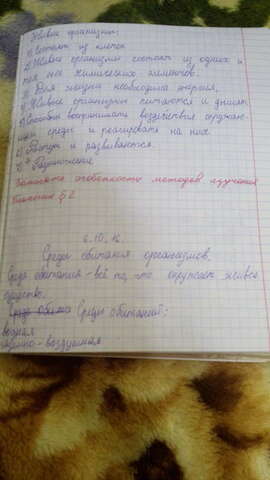 Живые организмы:
1) Состоят из клеток
2) Живые организмы состоят из одних и
тех же химических элементов.
3) Для жизни необходима энергия.
4) Живые организмы питаются и дышат
5) Способны воспринимать воздействия окружаю-
щей среды и реагировать на них.
6) Растут и развиваются.
7) Размножение
Записать особенности методов изучения
биологии § 2
6.10.16.
Среды обитания организмов.
Среда обитания - всё то, что окружает живое
существо.
Среды обитаний:
водная
наземно-воздушная